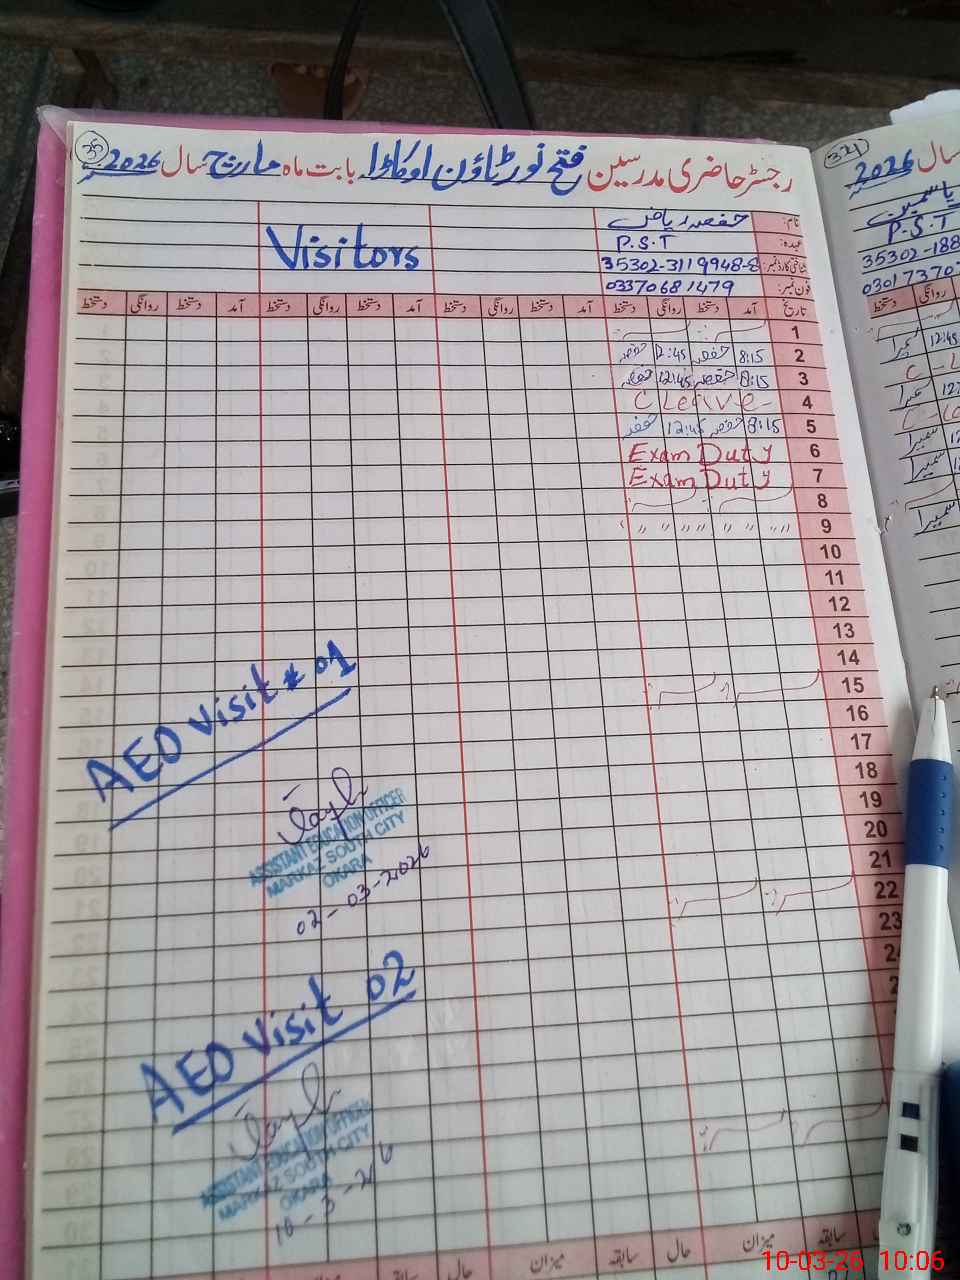 35
رجسٹر حاضری مدرسین فتح نور ٹاؤن اوکاڑا بابت ماہ مارچ سال 2026
Visitors
نام: حفصہ ریاض
عہدہ: P.S.T
شناختی کارڈ نمبر: 35302-3119948-8
فون نمبر: 03370681479
تاریخ آمد دستخط روانگی دستخط آمد دستخط روانگی دستخط آمد دستخط روانگی دستخط
1
2 8:15 حفصہ 12:45 حفصہ
3 8:15 حفصہ 12:45 حفصہ
4 C Leave
5 8:15 حفصہ 12:45
6 Exam Duty
7 Exam Duty
8
9 " " " " " " " "
10
11
12
13
14
15
16
17
18
19
20
21
22
23
AEO Visit # 01
ASSISTANT EDUCATION OFFICER
MARKAZ SOUTH CITY
OKARA
02-03-2026
AEO Visit 02
ASSISTANT EDUCATION OFFICER
MARKAZ SOUTH CITY
OKARA
10-3-26
میزان سابقہ حال میزان سابقہ حال میزان سابقہ
321
سال 2026
یاسمین
P.S.T
35302-188
03017370
روانگی دستخط
12:45
C-L
10-03-26 10:06